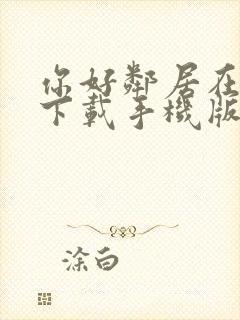 你好鄰居在
下載手機版
涂白